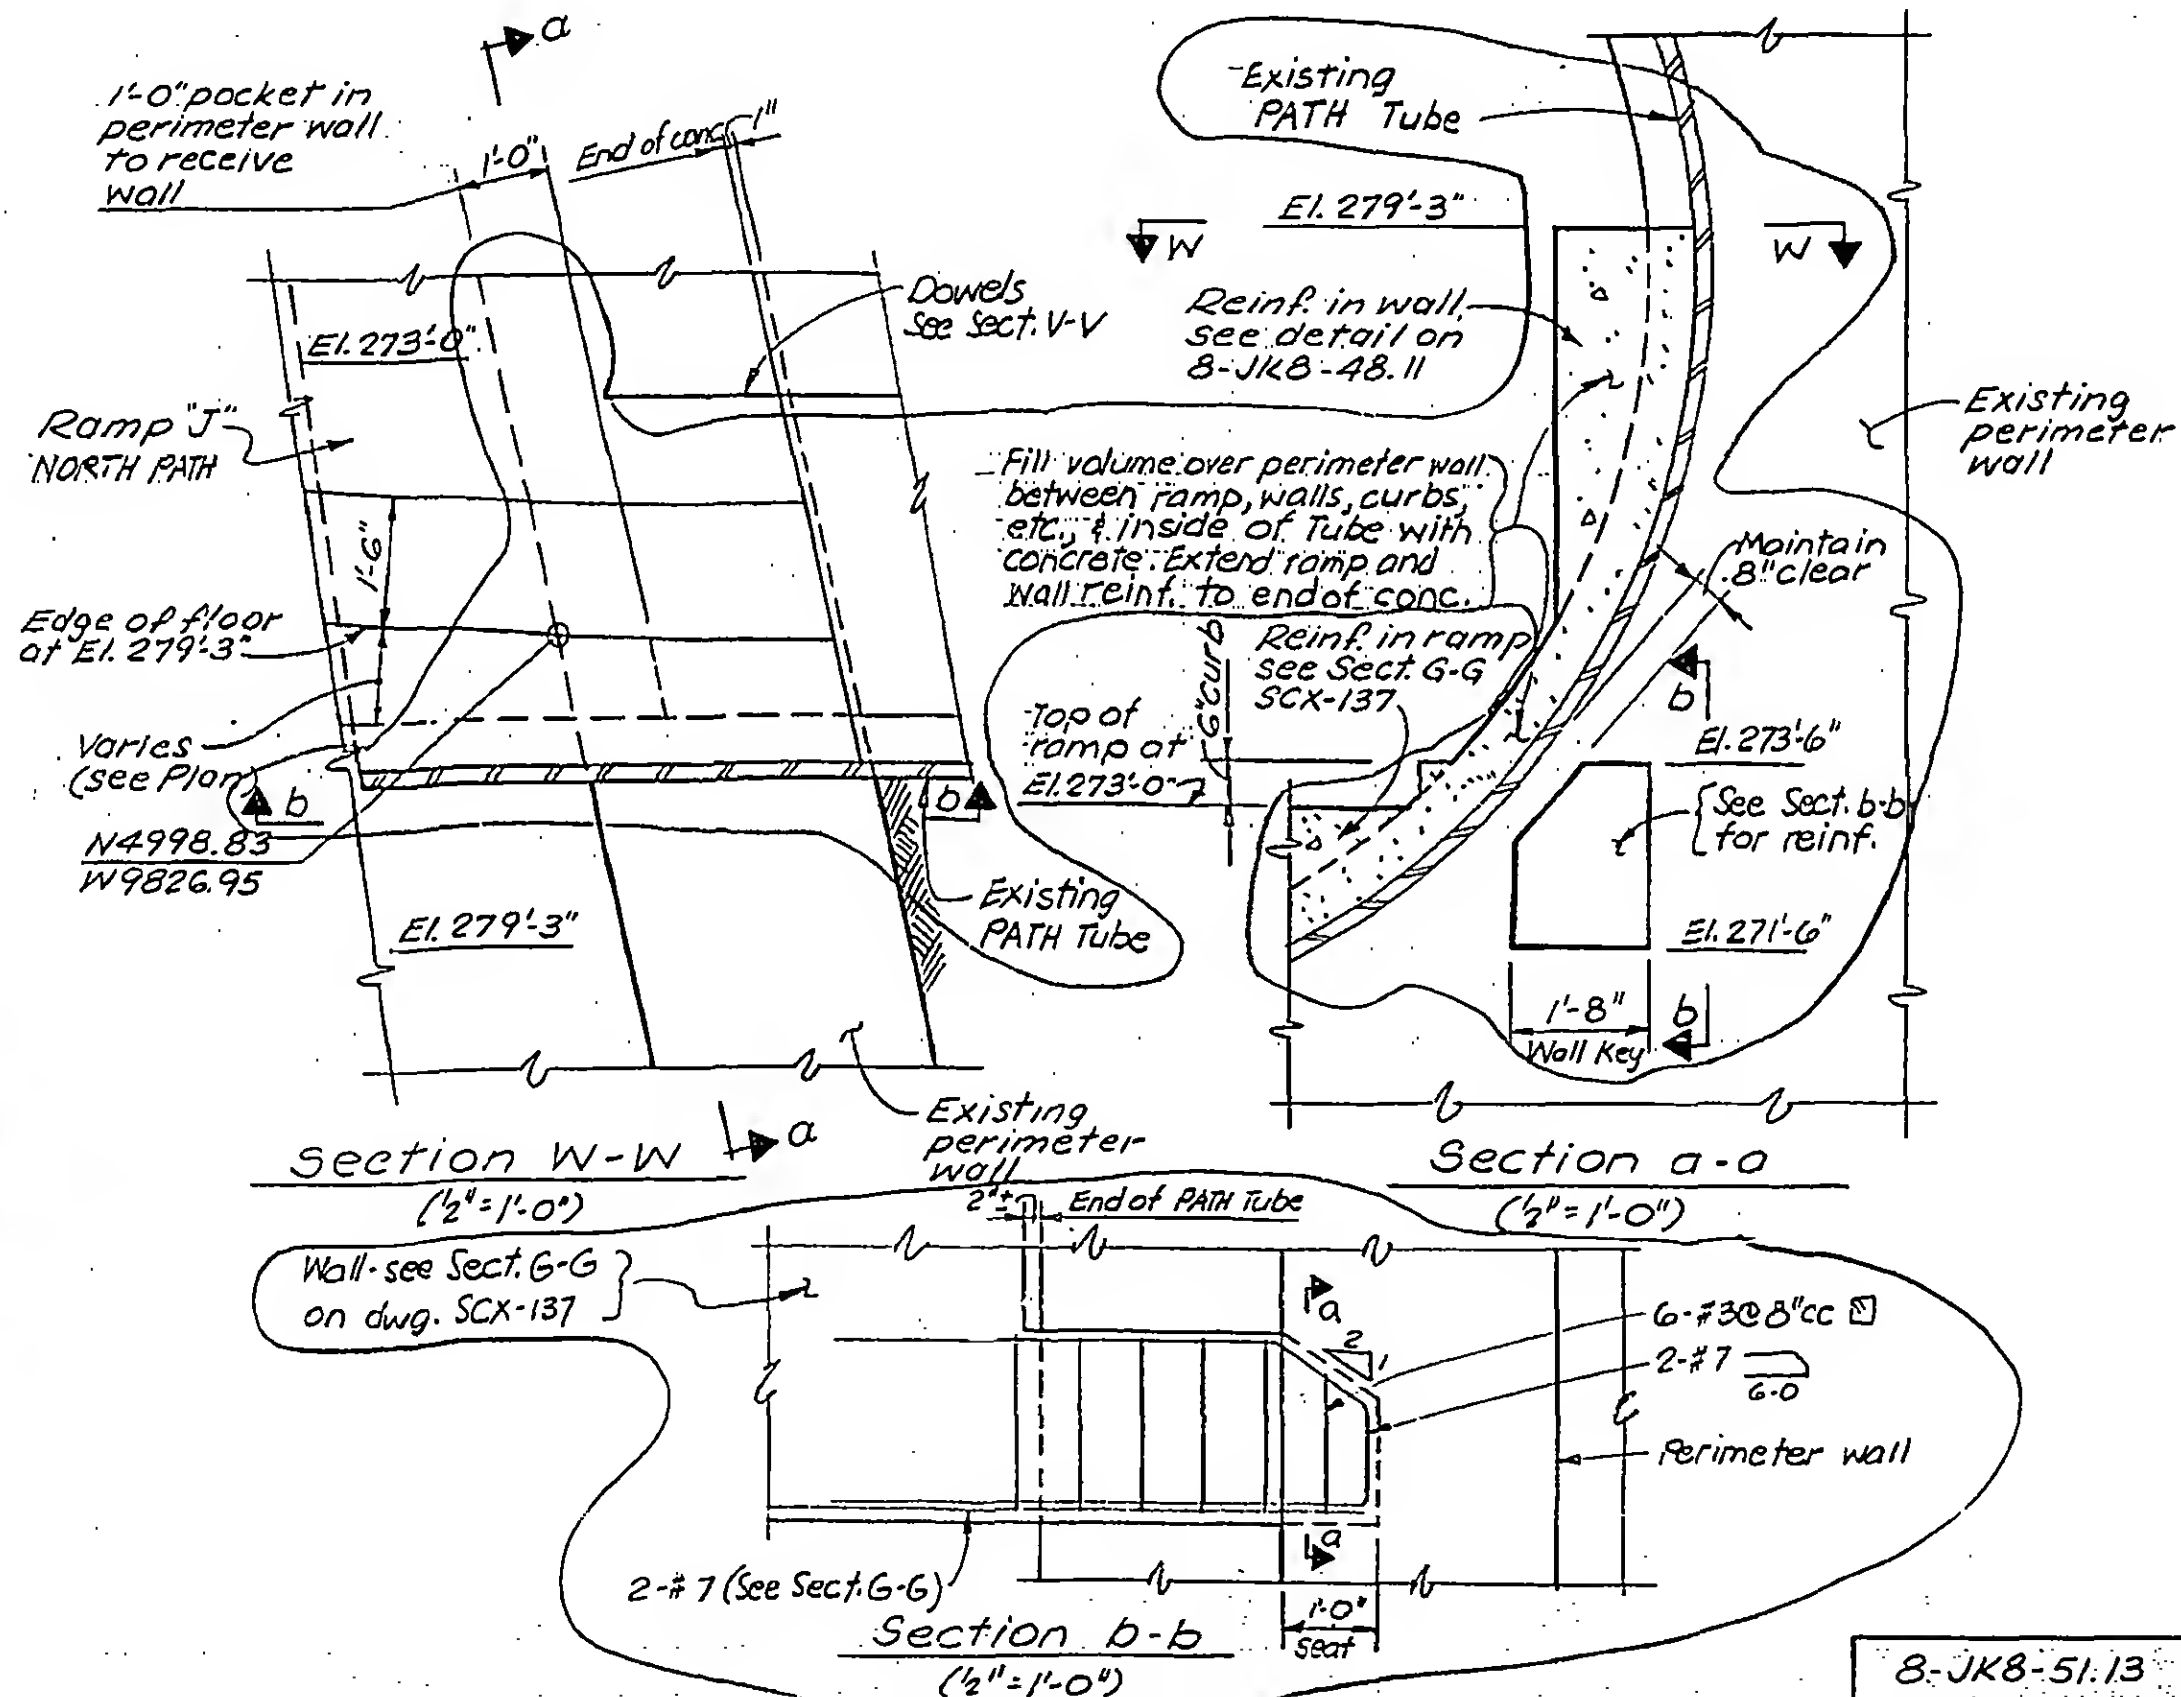 a
1'-0" pocket in
perimeter wall
to receive
wall
1'-0"
End of conc.
1"
El. 273'-0"
Dowels
See Sect. V-V
Ramp "J"
NORTH PATH
1'-6"
Edge of floor
at El. 279'-3"
Varies
(see Plan)
b
b
N4998.83
W9826.95
El. 279'-3"
Existing
PATH Tube
Existing
perimeter
wall
a
Section W-W
(1/2"=1'-0")
Existing
PATH Tube
El. 279'-3"
W
W
Reinf. in wall
see detail on
8-JK8-48.11
Existing
perimeter
wall
Fill volume over perimeter wall
between ramp, walls, curbs,
etc., & inside of Tube with
concrete. Extend ramp and
wall reinf. to end of conc.
Maintain
8" clear
6" curb
Reinf. in ramp
see Sect. G-G
SCX-137
Top of
ramp at
El. 273'-0"
b
El. 273'-6"
See Sect. b-b
for reinf.
El. 271'-6"
1'-8"
Wall Key
b
Section a-a
(1/2"=1'-0")
2"±
End of PATH Tube
Wall-see Sect. G-G
on dwg. SCX-137
a
2
1
6-#3@8"cc
2-#7
6-0
Perimeter wall
a
2-#7 (See Sect. G-G)
1'-0"
seat
Section b-b
(1/2"=1'-0")
8-JK8-51.13